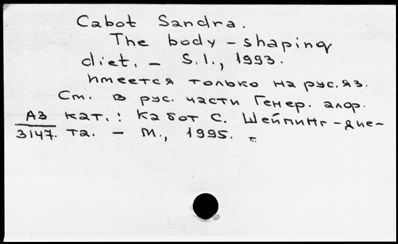 Cabot Sandra.
The body-shaping
diet. – S.l., 1993.
Имеется только на рус.яз.
См. в рус. части Генер. алф.
АЗ кат.: Кабот С. Шейпинг-дие-
3147. та. – М., 1995. г.